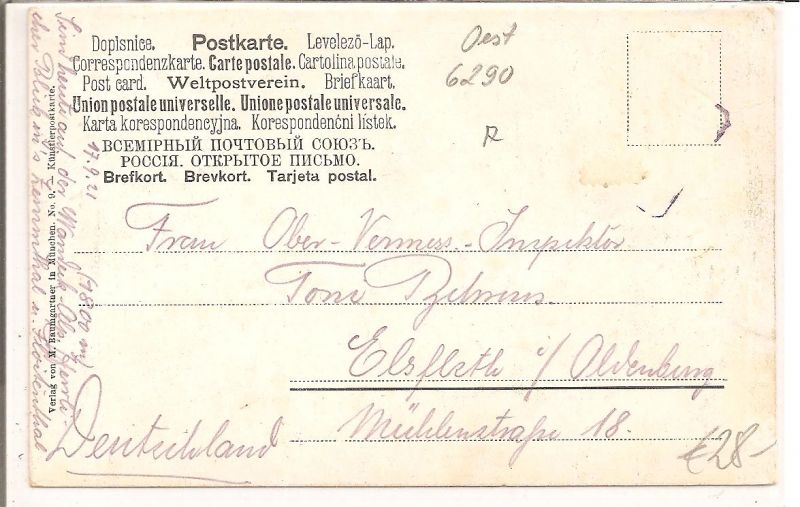 Dopisnice. Postkarte. Levelező-Lap.
Correspondenzkarte. Carte postale. Cartolina postale.
Post card. Weltpostverein. Briefkaart.
Union postale universelle. Unione postale universale.
Karta korespondencyjna. Korespondenční lístek.
ВСЕМІРНЫЙ ПОЧТОВЫЙ СОЮЗЪ.
РОССІЯ. ОТКРЫТОЕ ПИСЬМО.
Brefkort. Brevkort. Tarjeta postal.
Oest
6290
R
Frau Ober-Vermess.-Inspektor
Toni
Elsfleth i/ Oldenburg
Mühlenstraße 18.
Deutschland
€28-
17.9.21
heute auf der
Blick ins Zemmthal u. Floitenthal
Verlag von M. Baumgartner in München. No. 9. — Künstlerpostkarte.